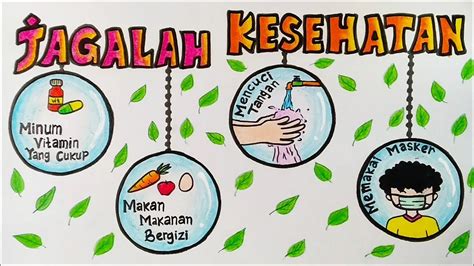 JAGALAH KESEHATAN
Minum
Vitamin
Yang Cukup
Makan
Makanan
Bergizi
Mencuci
Tangan
Memakai Masker